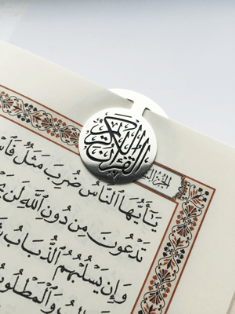 القرآن الكريم
يَٰٓأَيُّهَا ٱلنَّاسُ ضُرِبَ مَثَلٌ
تَدْعُونَ مِن دُونِ ٱللَّهِ لَن
وَإِن يَسْلُبْهُمُ ٱلذُّبَابُ
وَٱلْمَطْلُوبُ